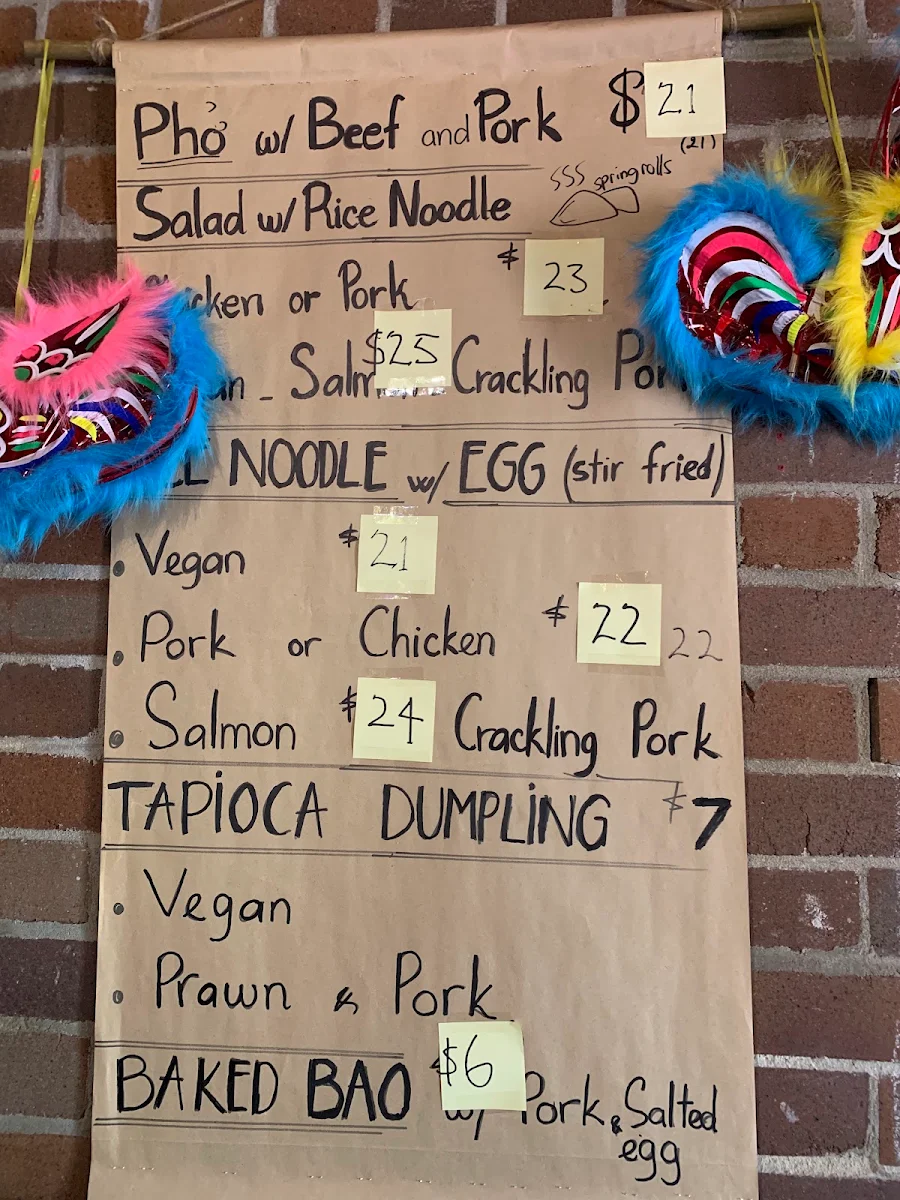 Phở w/ Beef and Pork $21
(21)
Salad w/ Rice Noodle springrolls
or Pork $23
$25 Crackling
NOODLE w/ EGG (stir fried)
Vegan $21
Pork or Chicken $22 22
Salmon $24 Crackling Pork
TAPIOCA DUMPLING $7
Vegan
Prawn & Pork
$6
BAKED BAO w/ Pork & Salted
egg